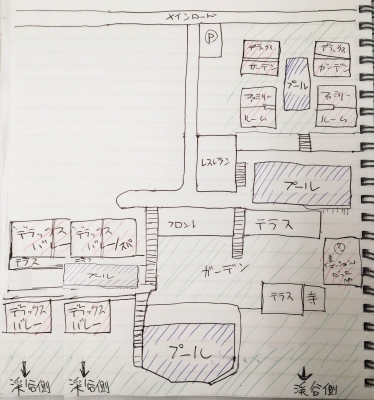 メインロード
Ⓟ
デラックス
ガーデン
デラックス
ガーデン
プール
ファミリー
ルーム
ファミリー
ルーム
レストラン
プール
フロント
テラス
デラックス
バレー
デラックス
バレー/スパ
テラス
プール
ガーデン
テラス
寺
デラックス
バレー
デラックス
バレー
プール
渓谷側
渓谷側
渓谷側